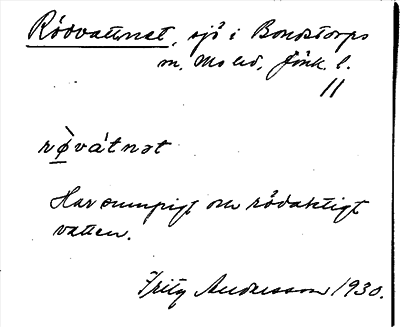 Rödvattnet, sjö i Bondstorps
sn, Mo hd, Jönk. l.
11
rø̀vátnət
Har sumpigt och rödaktigt
vatten.
Fritz Andersson 1930.